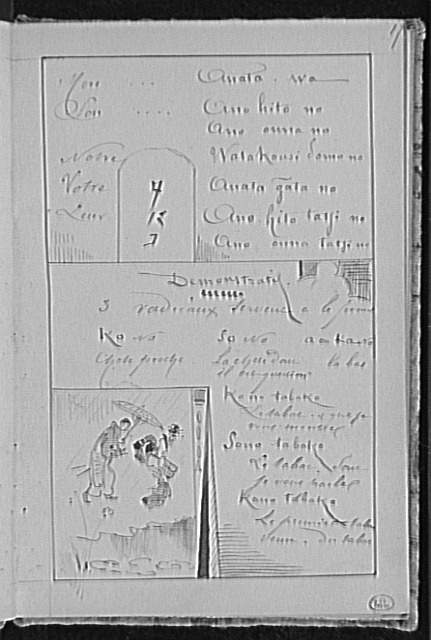 Mon ... Anata . wa
Son .... Ano hito no
Ano onna no
Notre Watakousi domo no
Votre Anata gata no
Leur Ano hito tatji no
Ano onna tatji no
Demonstratif
3 radicaux servent a le
Ko no So no a ou Ka no
Chose proche La chose dont la bas
Kono tabako
Le tabac que je
vous montre
Sono tabako
Le tabac dont
je vous parle
Kano tabako
Le premier tabac
venu . du tabac